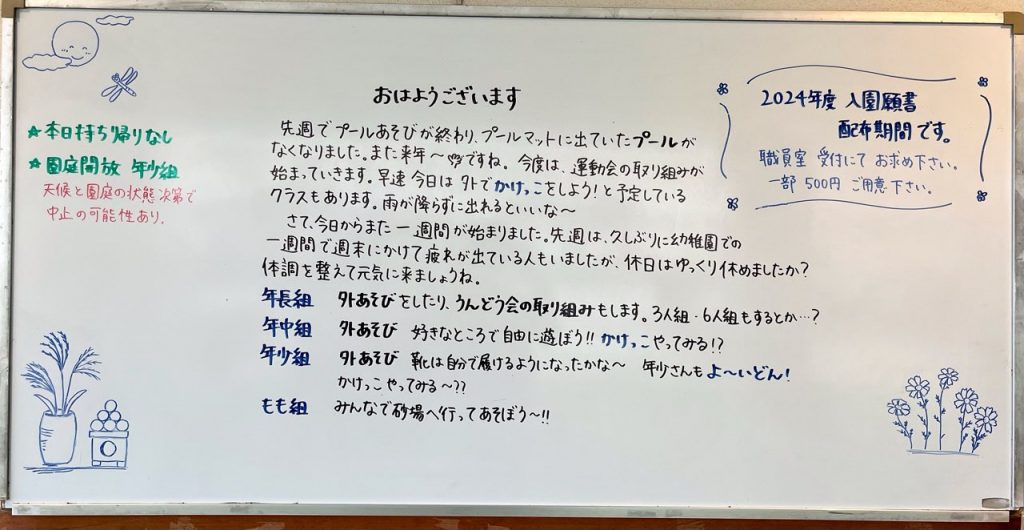 おはようございます
★本日持ち帰りなし
★園庭開放 年少組
天候と園庭の状態次第で
中止の可能性あり.
2024年度 入園願書
配布期間です。
職員室 受付にて お求め下さい。
一部 500円 ご用意下さい。
先週でプールあそびが終わり、プールマットに出ていたプールが
なくなりました。また来年〜ですね。今度は、運動会の取り組みが
始まっていきます。早速 今日は 外でかけっこをしよう!と予定している
クラスもあります。雨が降らずに出れるといいな〜
さて、今日からまた一週間が始まりました。先週は、久しぶりに幼稚園での
一週間で週末にかけて疲れが出ている人もいましたが、休日はゆっくり休めましたか?
体調を整えて元気に来ましょうね。
年長組 外あそびをしたり、うんどう会の取り組みもします。3人組・6人組もするとか…?
年中組 外あそび 好きなところで自由に遊ぼう!! かけっこやってみる!?
年少組 外あそび 靴は自分で履けるようになったかな〜 年少さんもよ〜いどん!
かけっこやってみる〜??
もも組 みんなで砂場へ行ってあそぼう〜!!